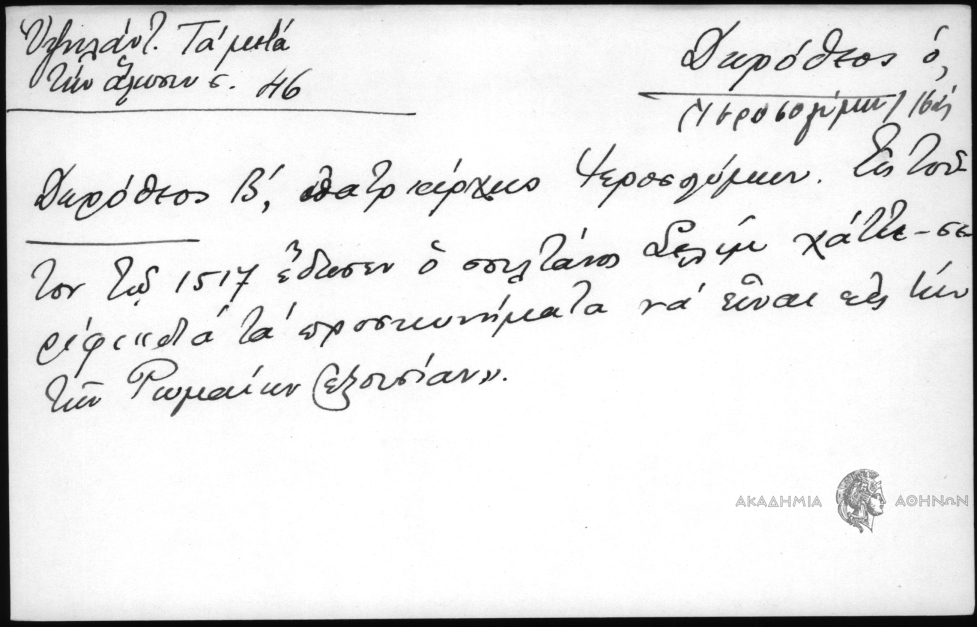 Ὑψηλάντ. Τά μετά
τήν ἅλωσιν σ. 46
Δωρόθεος ὁ,
(Ἱεροσολύμων) 16ος
Δωρόθεος Β', πατριάρχης Ἱεροσολύμων. Εἰς τοῦ-
τον τῷ 1517 ἔδωσεν ὁ σουλτάνος Σελίμ χάττι-σε-
ρίφι «διά τά προσκυνήματα νά εἶναι εἰς τήν
τῶν Ρωμαίων ἐξουσίαν».
ΑΚΑΔΗΜΙΑ ΑΘΗΝΩΝ